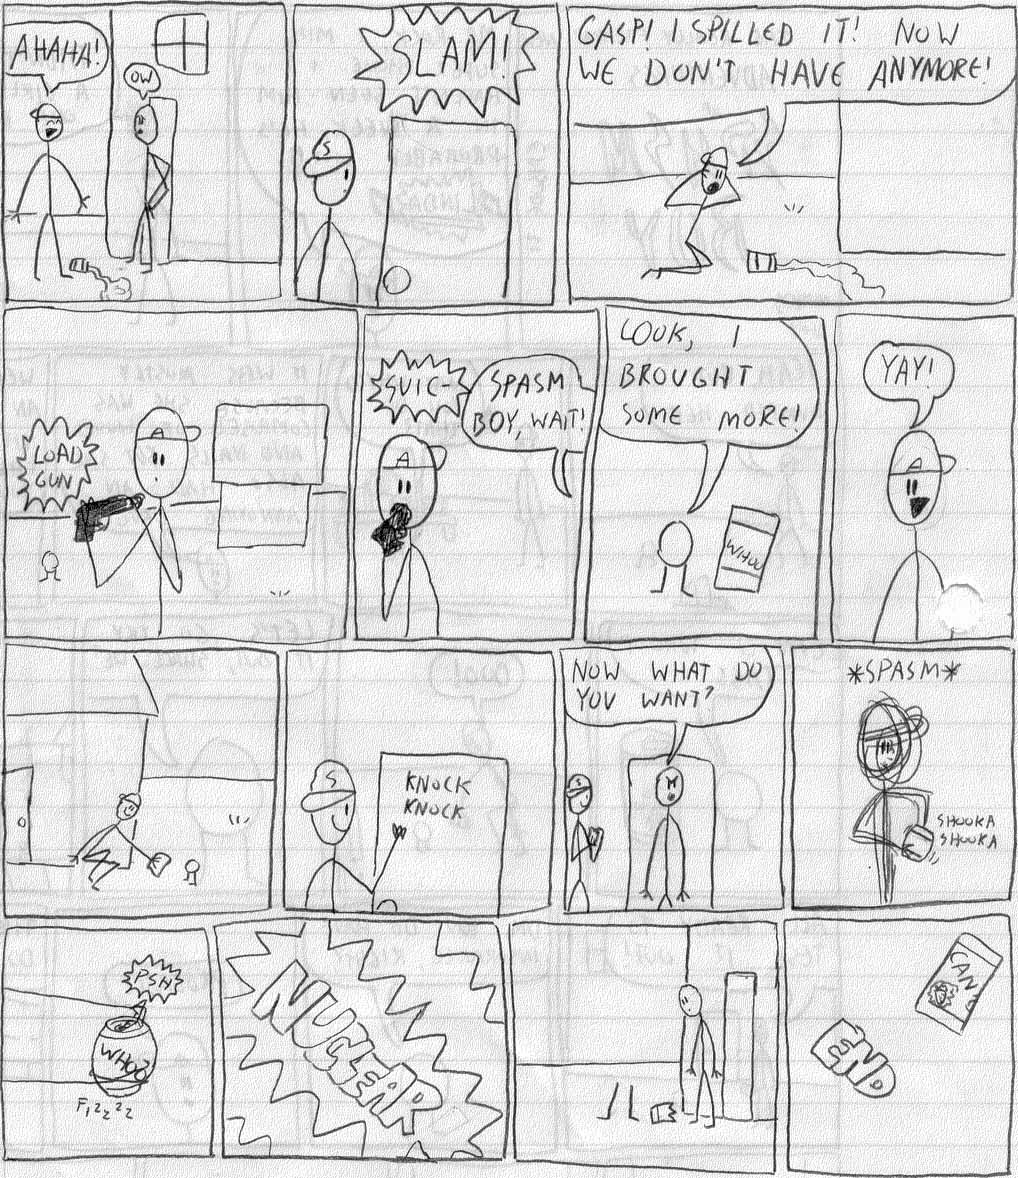 AHAHA!
OW
SLAM!
S
GASP! I SPILLED IT! NOW
WE DON'T HAVE ANYMORE!
LOAD
GUN
A
SUIC-
SPASM
BOY, WAIT!
A
LOOK, I
BROUGHT
SOME MORE!
WHOO
YAY!
A
KNOCK
KNOCK
S
NOW WHAT DO
YOU WANT?
S
*SPASM*
SHOOKA
SHOOKA
PSH
WHOO
FIZZZZ
NUCLEAR
CAN
END